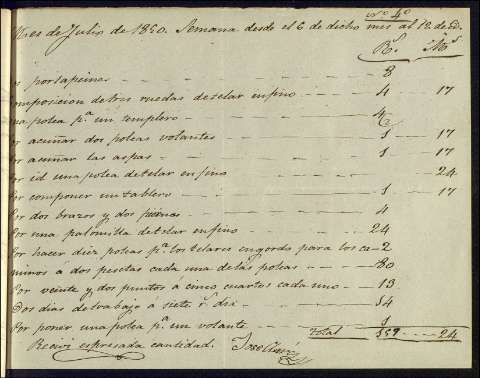 nº 4º
Mes de Julio de 1850. Semana desde el 6 de dicho mes al 12. de id.
Rs. Ms.
portapeines 8
composicion de tres ruedas de telar en fino 4 17
una polea pª. un templero 4
Por acuñar dos poleas volantes 1 17
Por acuñar las aspas 1 17
Por id una polea de telar en fino 24
Por componer un tablero 1 17
Por dos brazos y dos 4
Por una palomilla de telar en fino 24
Por hacer diez poleas pª. los telares en gordo para los ca- 2
muros á dos pesetas cada una de las poleas 80
Por veinte y dos puntos á cinco cuartos cada uno 13
Dos dias de trabajo á siete rs. 14
Por poner una polea pª. un volante 1
total 159 24
Recivi espresada cantidad. Jose